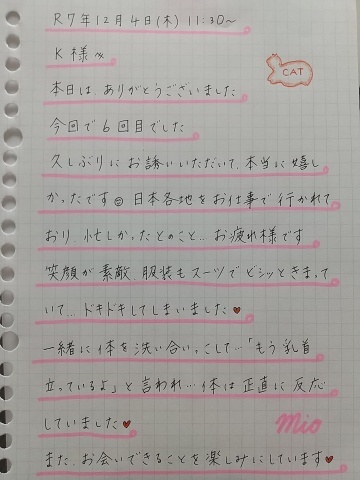 R7年12月4日(木) 11:30〜
K様へ
CAT
本日は、ありがとうございました
今回で6回目でした
久しぶりにお誘いいただいて、本当に嬉し
かったです☺ 日本各地をお仕事で行かれて
おり、忙しかったとのこと… お疲れ様です
笑顔が素敵、服装もスーツでビシッときまって
いて… ドキドキしてしまいました♥
一緒に体を洗い合いっこして…「もう乳首
立っているよ」と言われ… 体は正直に反応
していました♥
Mio
また、お会いできることを楽しみにしています♥